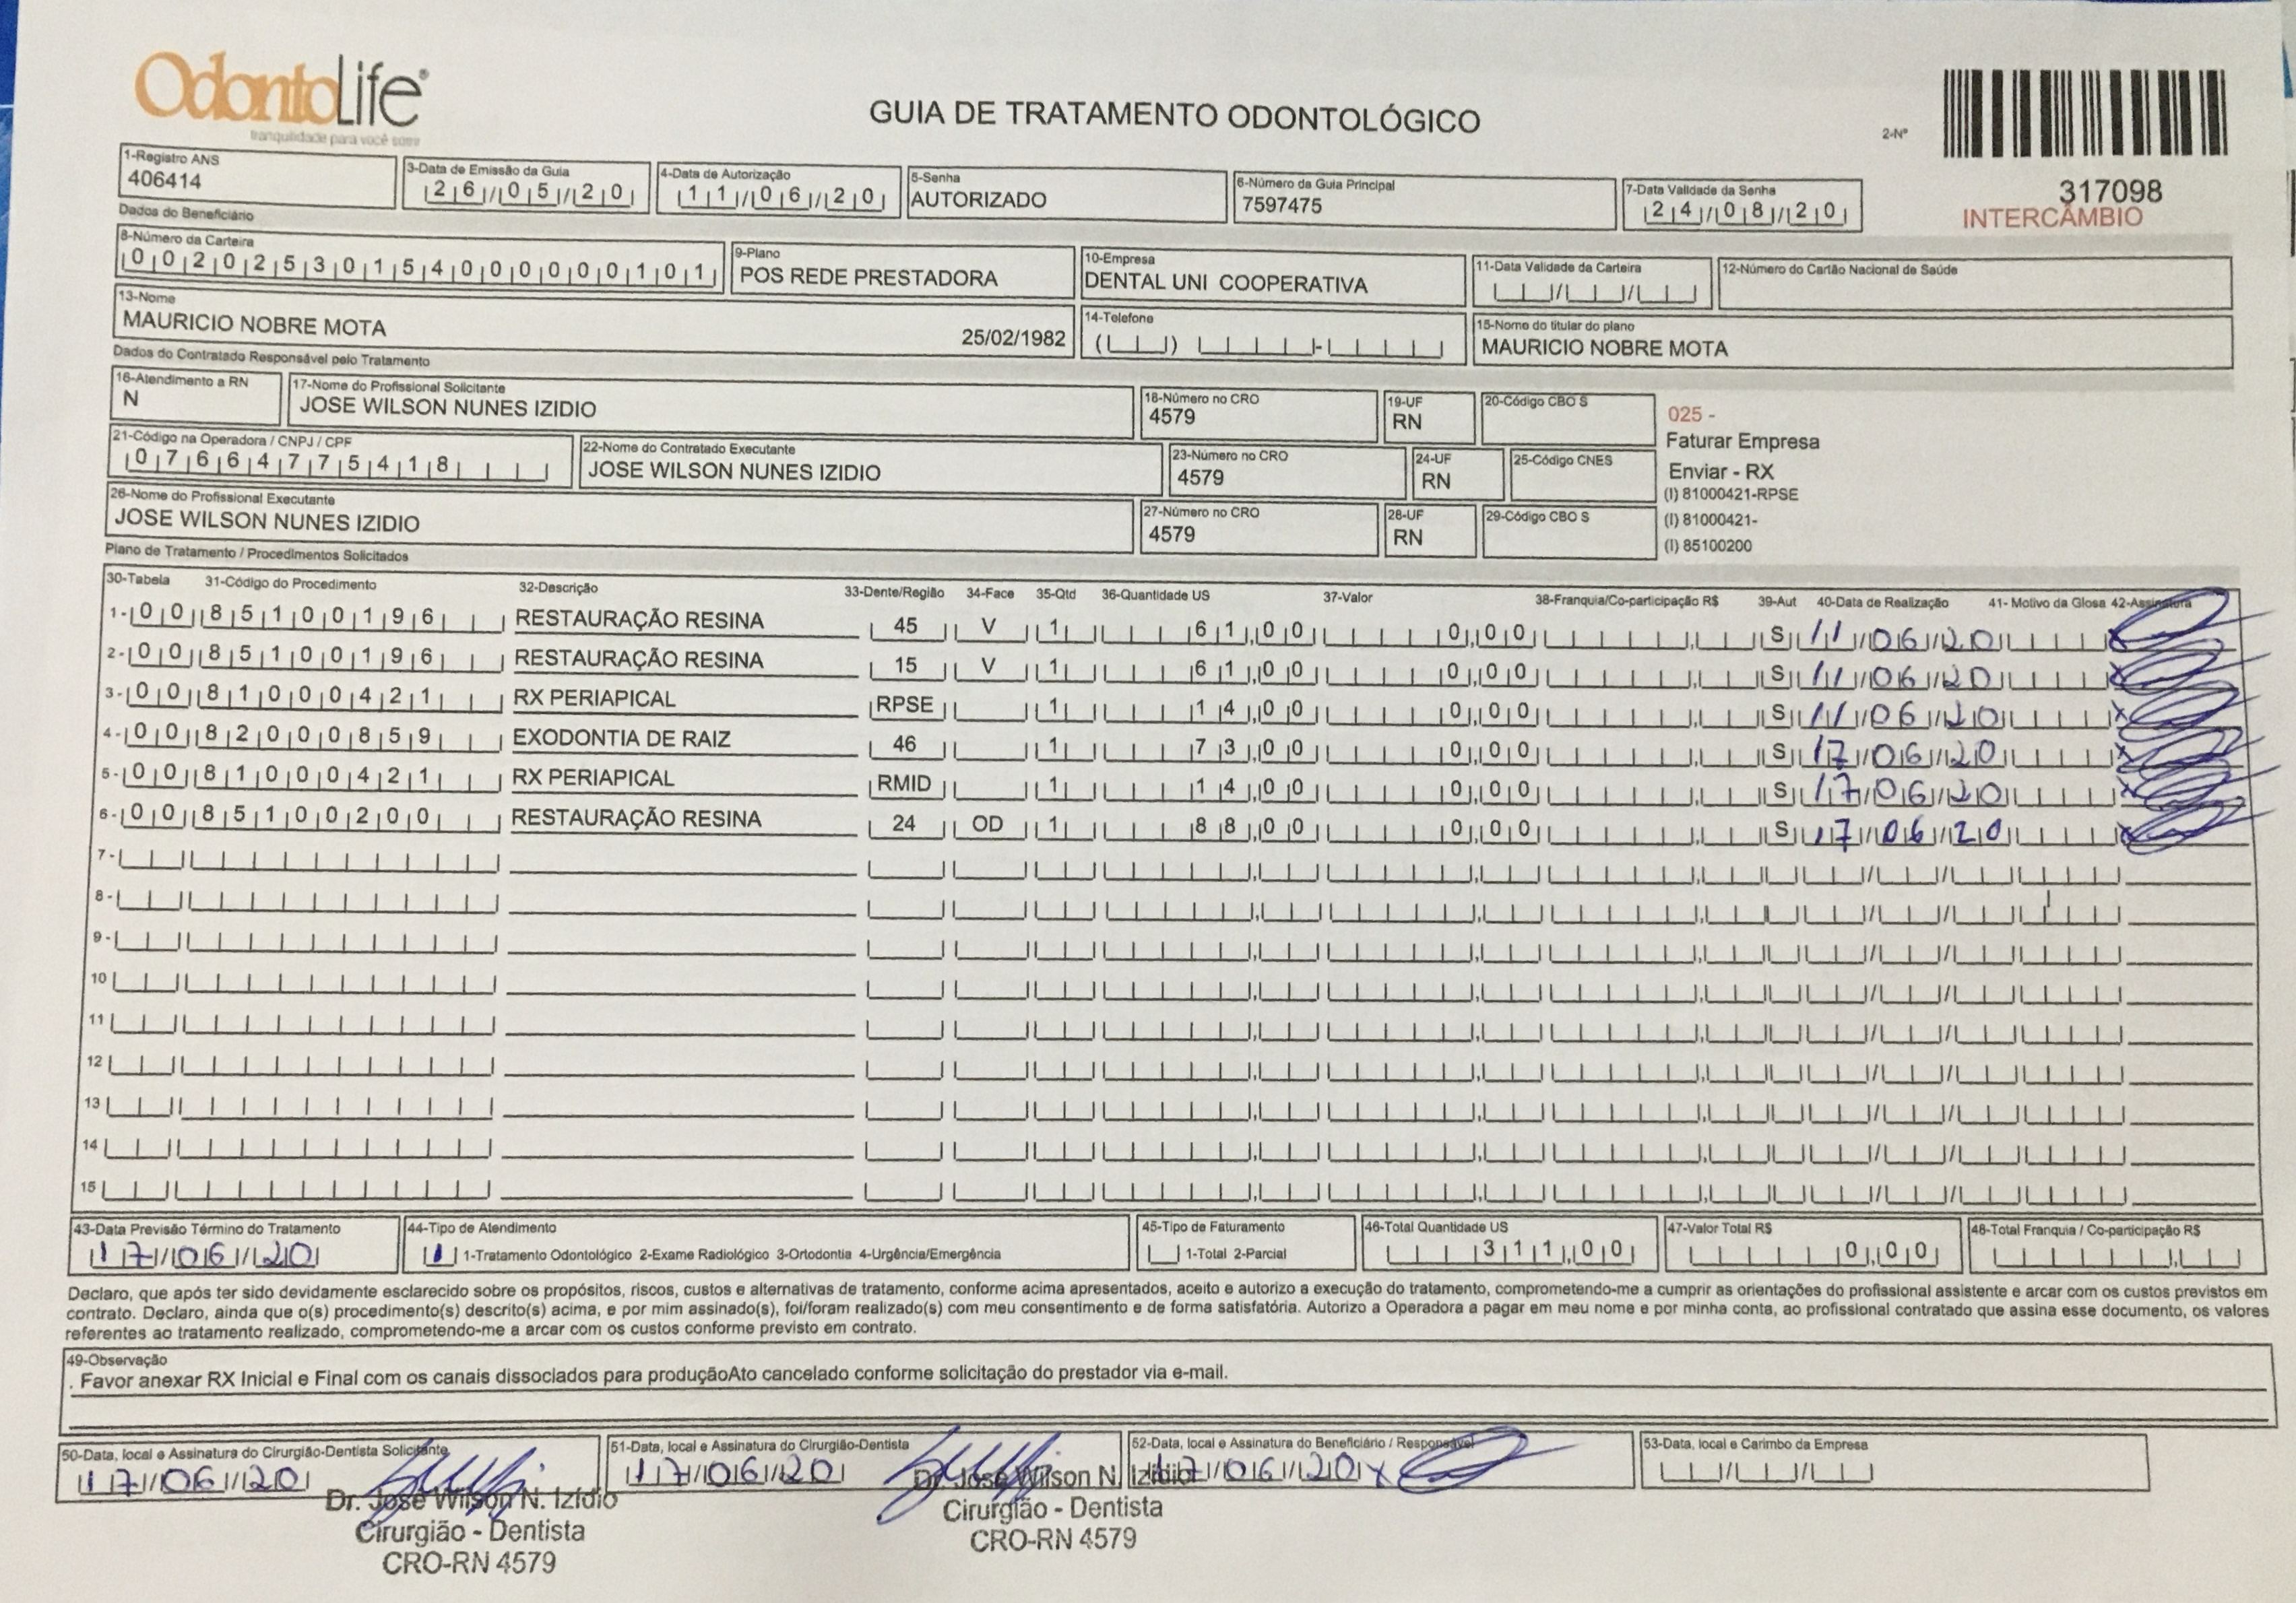 OdontoLife®
tranquilidade para você sorrir
GUIA DE TRATAMENTO ODONTOLÓGICO
2-Nº
317098
INTERCÂMBIO
1-Registro ANS
406414
3-Data de Emissão da Guia
26/05/20
4-Data de Autorização
11/06/20
5-Senha
AUTORIZADO
6-Número da Guia Principal
7597475
7-Data Validade da Senha
24/08/20
Dados do Beneficiário
8-Número da Carteira
00202530154000000101
9-Plano
POS REDE PRESTADORA
10-Empresa
DENTAL UNI COOPERATIVA
11-Data Validade da Carteira
12-Número do Cartão Nacional de Saúde
13-Nome
MAURICIO NOBRE MOTA 25/02/1982
14-Telefone
15-Nome do titular do plano
MAURICIO NOBRE MOTA
Dados do Contratado Responsável pelo Tratamento
16-Atendimento a RN
N
17-Nome do Profissional Solicitante
JOSE WILSON NUNES IZIDIO
18-Número no CRO
4579
19-UF
RN
20-Código CBO S
025 -
Faturar Empresa
Enviar - RX
(I) 81000421-RPSE
(I) 81000421-
(I) 85100200
21-Código na Operadora / CNPJ / CPF
07664775418
22-Nome do Contratado Executante
JOSE WILSON NUNES IZIDIO
23-Número no CRO
4579
24-UF
RN
25-Código CNES
26-Nome do Profissional Executante
JOSE WILSON NUNES IZIDIO
27-Número no CRO
4579
28-UF
RN
29-Código CBO S
Plano de Tratamento / Procedimentos Solicitados
30-Tabela 31-Código do Procedimento 32-Descrição 33-Dente/Região 34-Face 35-Qtd 36-Quantidade US 37-Valor 38-Franquia/Co-participação R$ 39-Aut 40-Data de Realização 41- Motivo da Glosa 42-Assinatura
1- 00 85100196 RESTAURAÇÃO RESINA 45 V 1 61,00 0,00 S 11/06/20
2- 00 85100196 RESTAURAÇÃO RESINA 15 V 1 61,00 0,00 S 11/06/20
3- 00 81000421 RX PERIAPICAL RPSE 1 14,00 0,00 S 11/06/20
4- 00 82000859 EXODONTIA DE RAIZ 46 1 73,00 0,00 S 17/06/20
5- 00 81000421 RX PERIAPICAL RMID 1 14,00 0,00 S 17/06/20
6- 00 85100200 RESTAURAÇÃO RESINA 24 OD 1 88,00 0,00 S 17/06/20
7-
8-
9-
10
11
12
13
14
15
43-Data Previsão Término do Tratamento
17/06/20
44-Tipo de Atendimento
1 1-Tratamento Odontológico 2-Exame Radiológico 3-Ortodontia 4-Urgência/Emergência
45-Tipo de Faturamento
1-Total 2-Parcial
46-Total Quantidade US
311,00
47-Valor Total R$
0,00
48-Total Franquia / Co-participação R$
Declaro, que após ter sido devidamente esclarecido sobre os propósitos, riscos, custos e alternativas de tratamento, conforme acima apresentados, aceito e autorizo a execução do tratamento, comprometendo-me a cumprir as orientações do profissional assistente e arcar com os custos previstos em
contrato. Declaro, ainda que o(s) procedimento(s) descrito(s) acima, e por mim assinado(s), foi/foram realizado(s) com meu consentimento e de forma satisfatória. Autorizo a Operadora a pagar em meu nome e por minha conta, ao profissional contratado que assina esse documento, os valores
referentes ao tratamento realizado, comprometendo-me a arcar com os custos conforme previsto em contrato.
49-Observação
. Favor anexar RX Inicial e Final com os canais dissociados para produçãoAto cancelado conforme solicitação do prestador via e-mail.
50-Data, local e Assinatura do Cirurgião-Dentista Solicitante
17/06/20
51-Data, local e Assinatura do Cirurgião-Dentista
17/06/20
52-Data, local e Assinatura do Beneficiário / Responsável
17/06/20 x
53-Data, local e Carimbo da Empresa
Dr. José Wilson N. Izídio
Cirurgião - Dentista
CRO-RN 4579
Dr. José Wilson N. Izídio
Cirurgião - Dentista
CRO-RN 4579